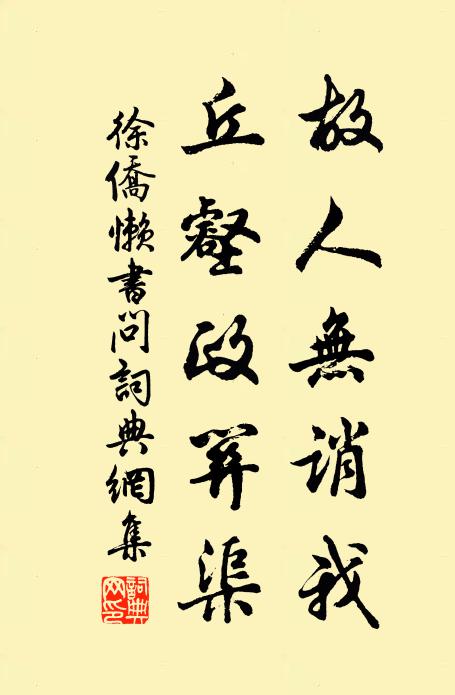 故人無誚我
丘壑政關渠
徐僑懶書問詞典網集
詞典網印